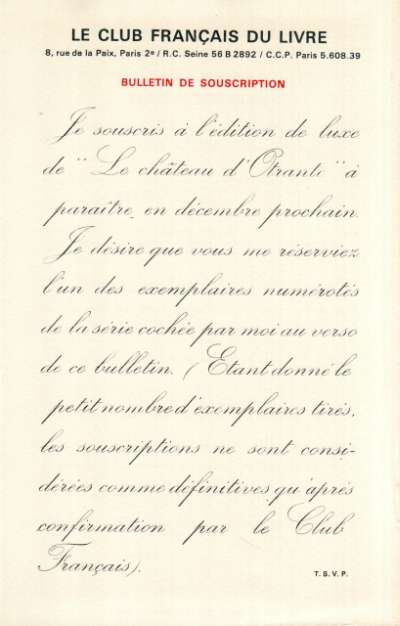 LE CLUB FRANÇAIS DU LIVRE
8, rue de la Paix, Paris 2e / R.C. Seine 56 B 2892 / C.C.P. Paris 5.608.39
BULLETIN DE SOUSCRIPTION
Je souscris à l'édition de luxe
de " Le château d'Otrante " à
paraître en décembre prochain.
Je désire que vous me réserviez
l'un des exemplaires numérotés
de la série cochée par moi au verso
de ce bulletin. (Etant donné le
petit nombre d'exemplaires tirés,
les souscriptions ne sont consi-
dérées comme définitives qu'après
confirmation par le Club
Français).
T.S.V.P.